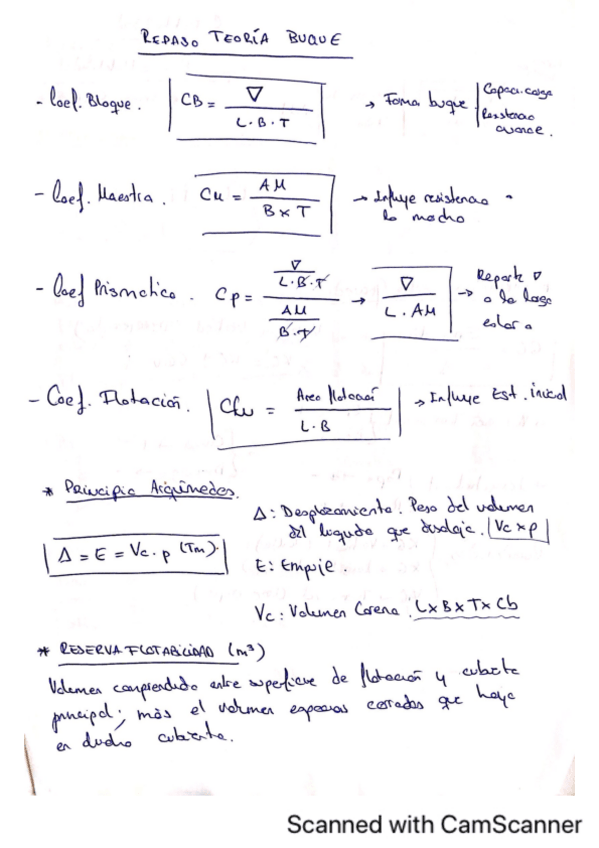 REPASO TEORÍA BUQUE
- Coef. Bloque. CB = ∇ / L·B·T → Forma buque | Capaci. carga
Resistencia
avance.
- Coef. Maestra. CM = AM / B x T → Influye resistencia
la marcha
- Coef Prismatico. Cp = (∇ / L·B·T) / (AM / B·T) → ∇ / L·AM → Reparte ∇
a lo largo
eslora
- Coef. Flotación. = Area flotación / L·B → Influye Est. inicial
* Principio Arquímedes.
Δ = E = Vc·ρ (Tm).
Δ: Desplazamiento. Peso del volumen
del liquido que desaloja. |Vc x ρ|
E: Empuje.
Vc: Volumen Carena. L x B x T x Cb
* RESERVA FLOTABILIDAD (m³)
Volumen comprendido entre superficie de flotación y cubierta
principal; más el volumen espacios cerrados que haya
en dicha cubierta.
Scanned with CamScanner